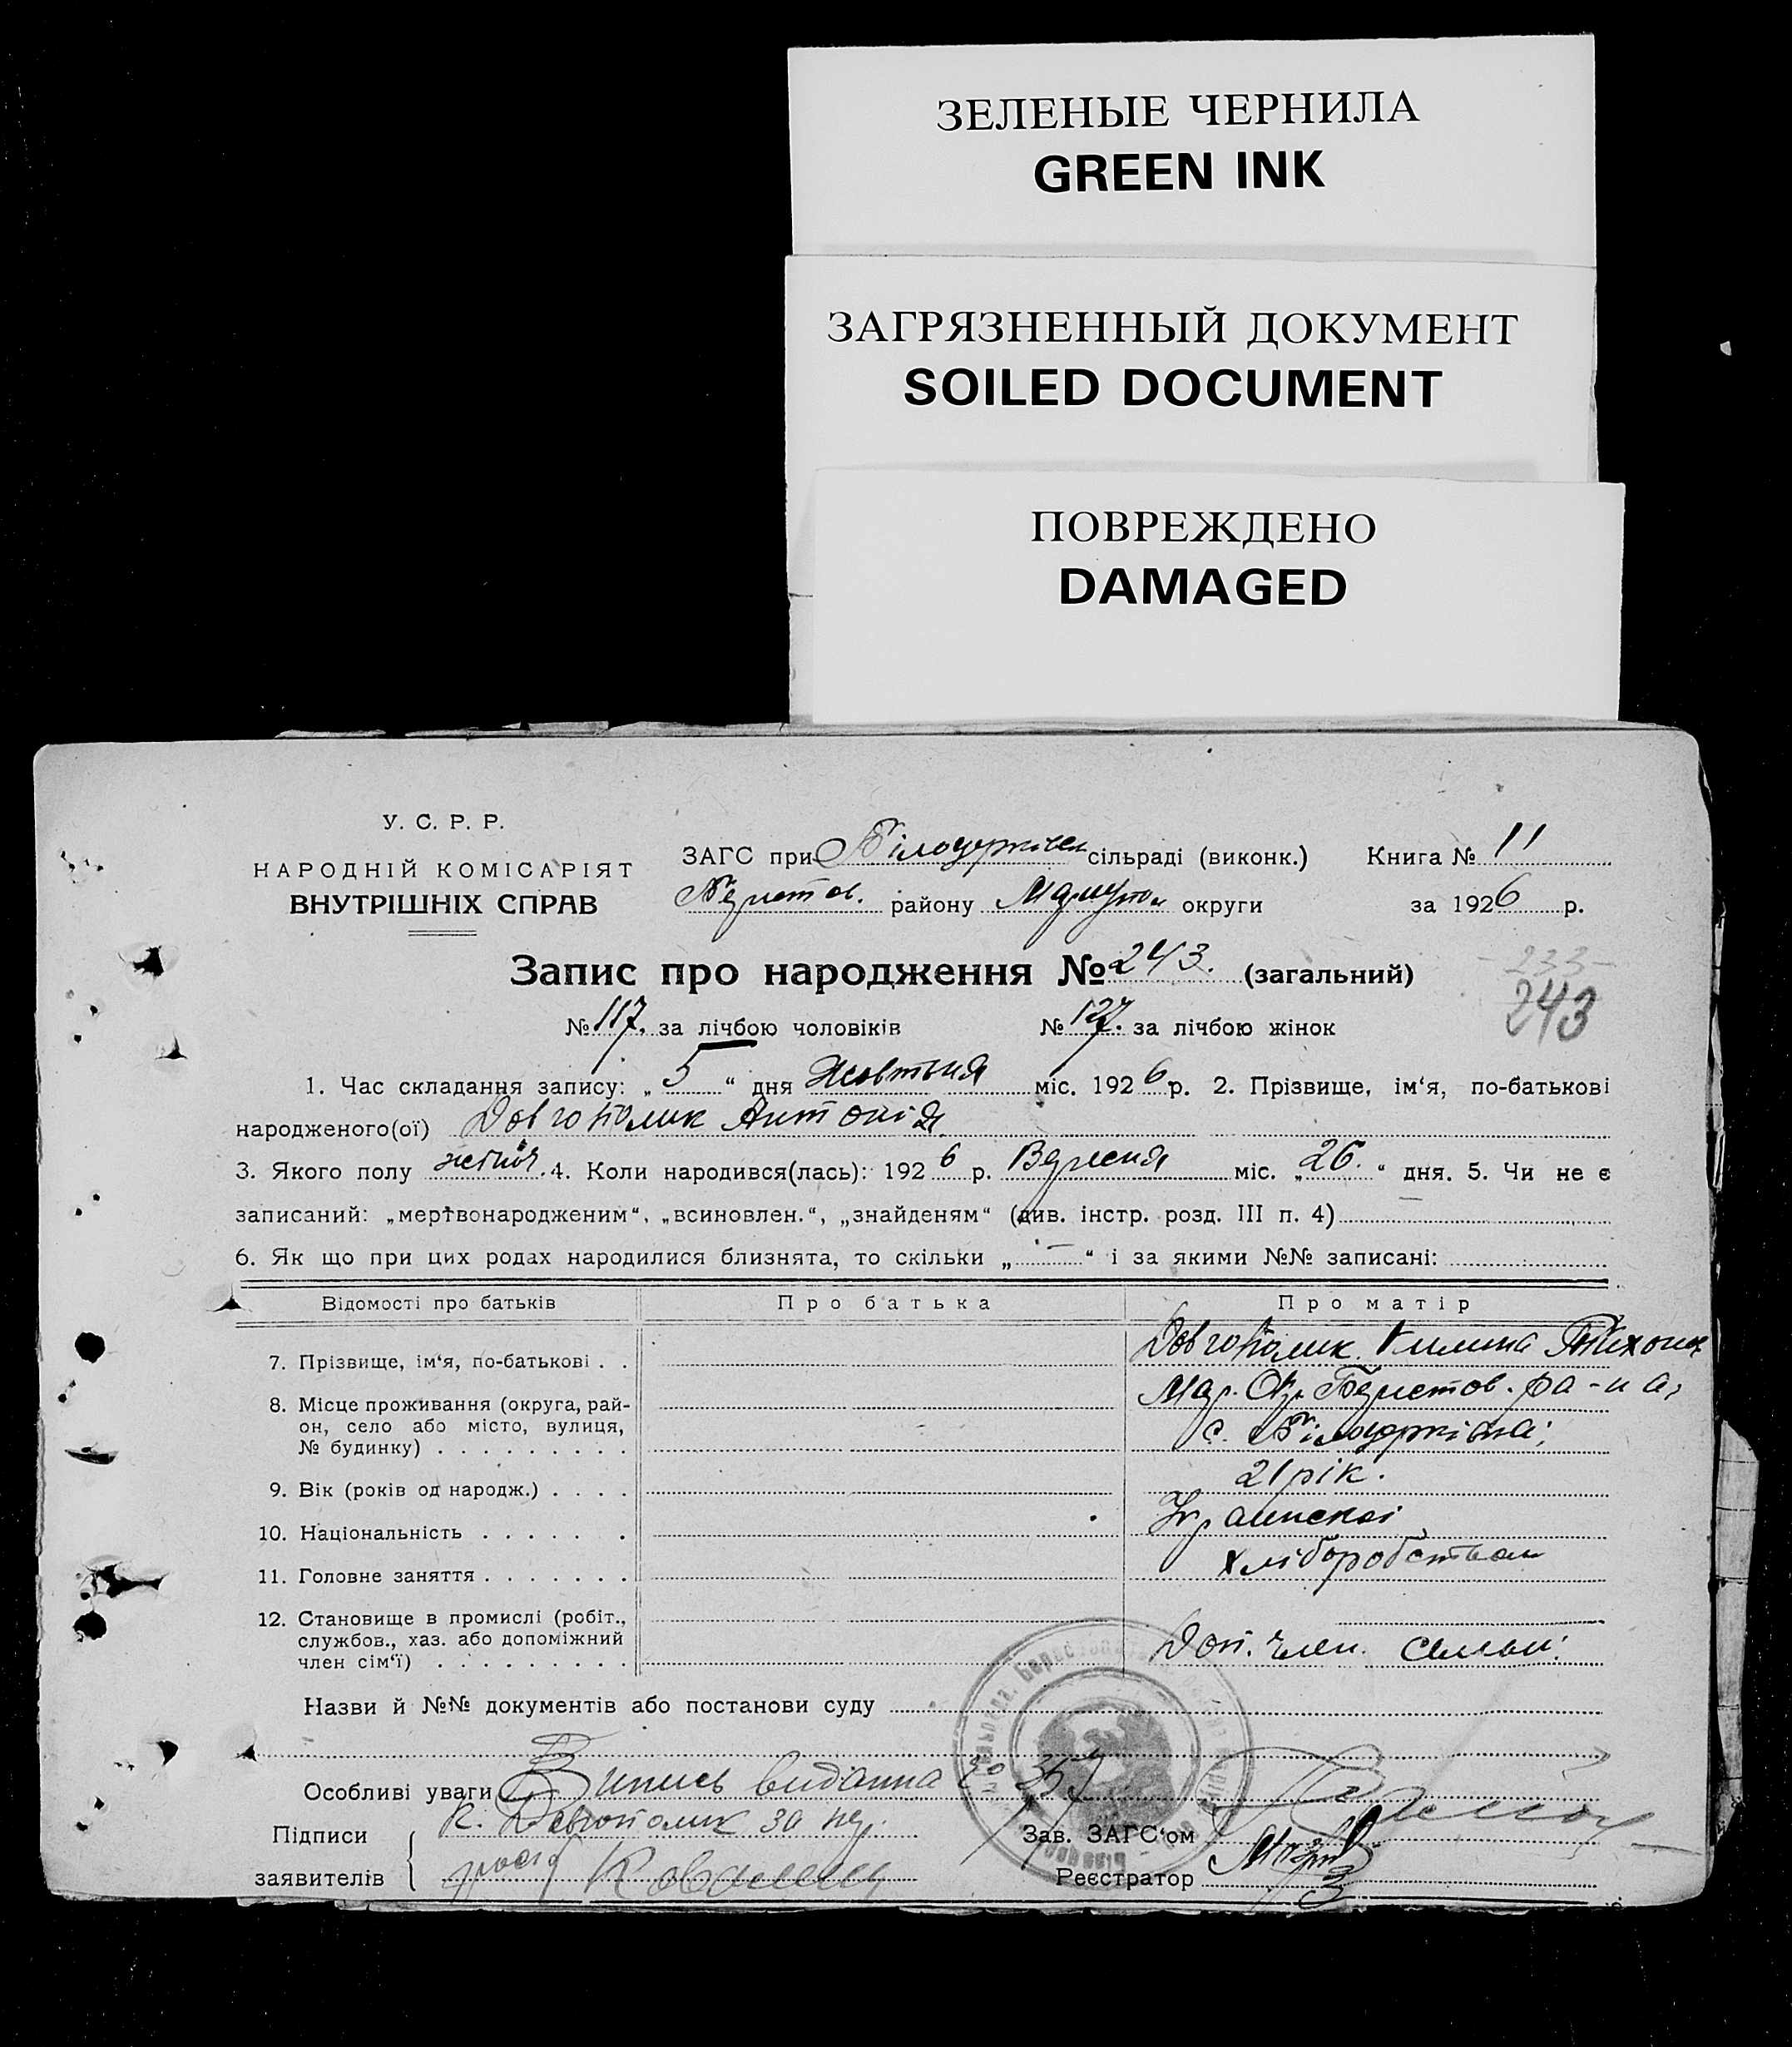 ЗЕЛЕНЫЕ ЧЕРНИЛА
GREEN INK
ЗАГРЯЗНЕННЫЙ ДОКУМЕНТ
SOILED DOCUMENT
ПОВРЕЖДЕНО
DAMAGED
У. С. Р. Р.
НАРОДНІЙ КОМІСАРІЯТ
ВНУТРІШНІХ СПРАВ
ЗАГС при сільраді (виконк.) Книга № 11
району округи за 1926 р.
Запис про народження № 243. (загальний)
233
243
№ 117. за лічбою чоловіків № 127. за лічбою жінок
1. Час складання запису: „ 5 “ дня Жовтня міс. 1926 р. 2. Прізвище, ім‘я, по-батькові
народженого(ої) Довгополик Антонія
3. Якого полу жіноч. 4. Коли народився(лась): 1926 р. Вересня міс. „ 26. “ дня. 5. Чи не є
записаний: „мертвонародженим“, „всиновлен.“, „знайденям“ (див. інстр. розд. III п. 4)
6. Як що при цих родах народилися близнята, то скільки „ — “ і за якими №№ записані:
Відомості про батьків Про батька Про матір
7. Прізвище, ім‘я, по-батькові . . Довгополик
8. Місце проживання (округа, рай-
он, село або місто, вулиця,
№ будинку) . . . . . . . . .
Мар. Окр. Берестов. ра-на,
с.
9. Вік (років од народж.) . . . . 21 рік.
10. Національність . . . . . . .
11. Головне заняття . . . . . . . хліборобством
12. Становище в промислі (робіт.,
службов., хаз. або допоміжний
член сім‘ї) . . . . . . . . .
Доп. член. семьи.
Назви й №№ документів або постанови суду
Особливі уваги видана
Підписи
заявителів
К. Довгополик за не
Зав. ЗАГС‘ом
Реєстратор